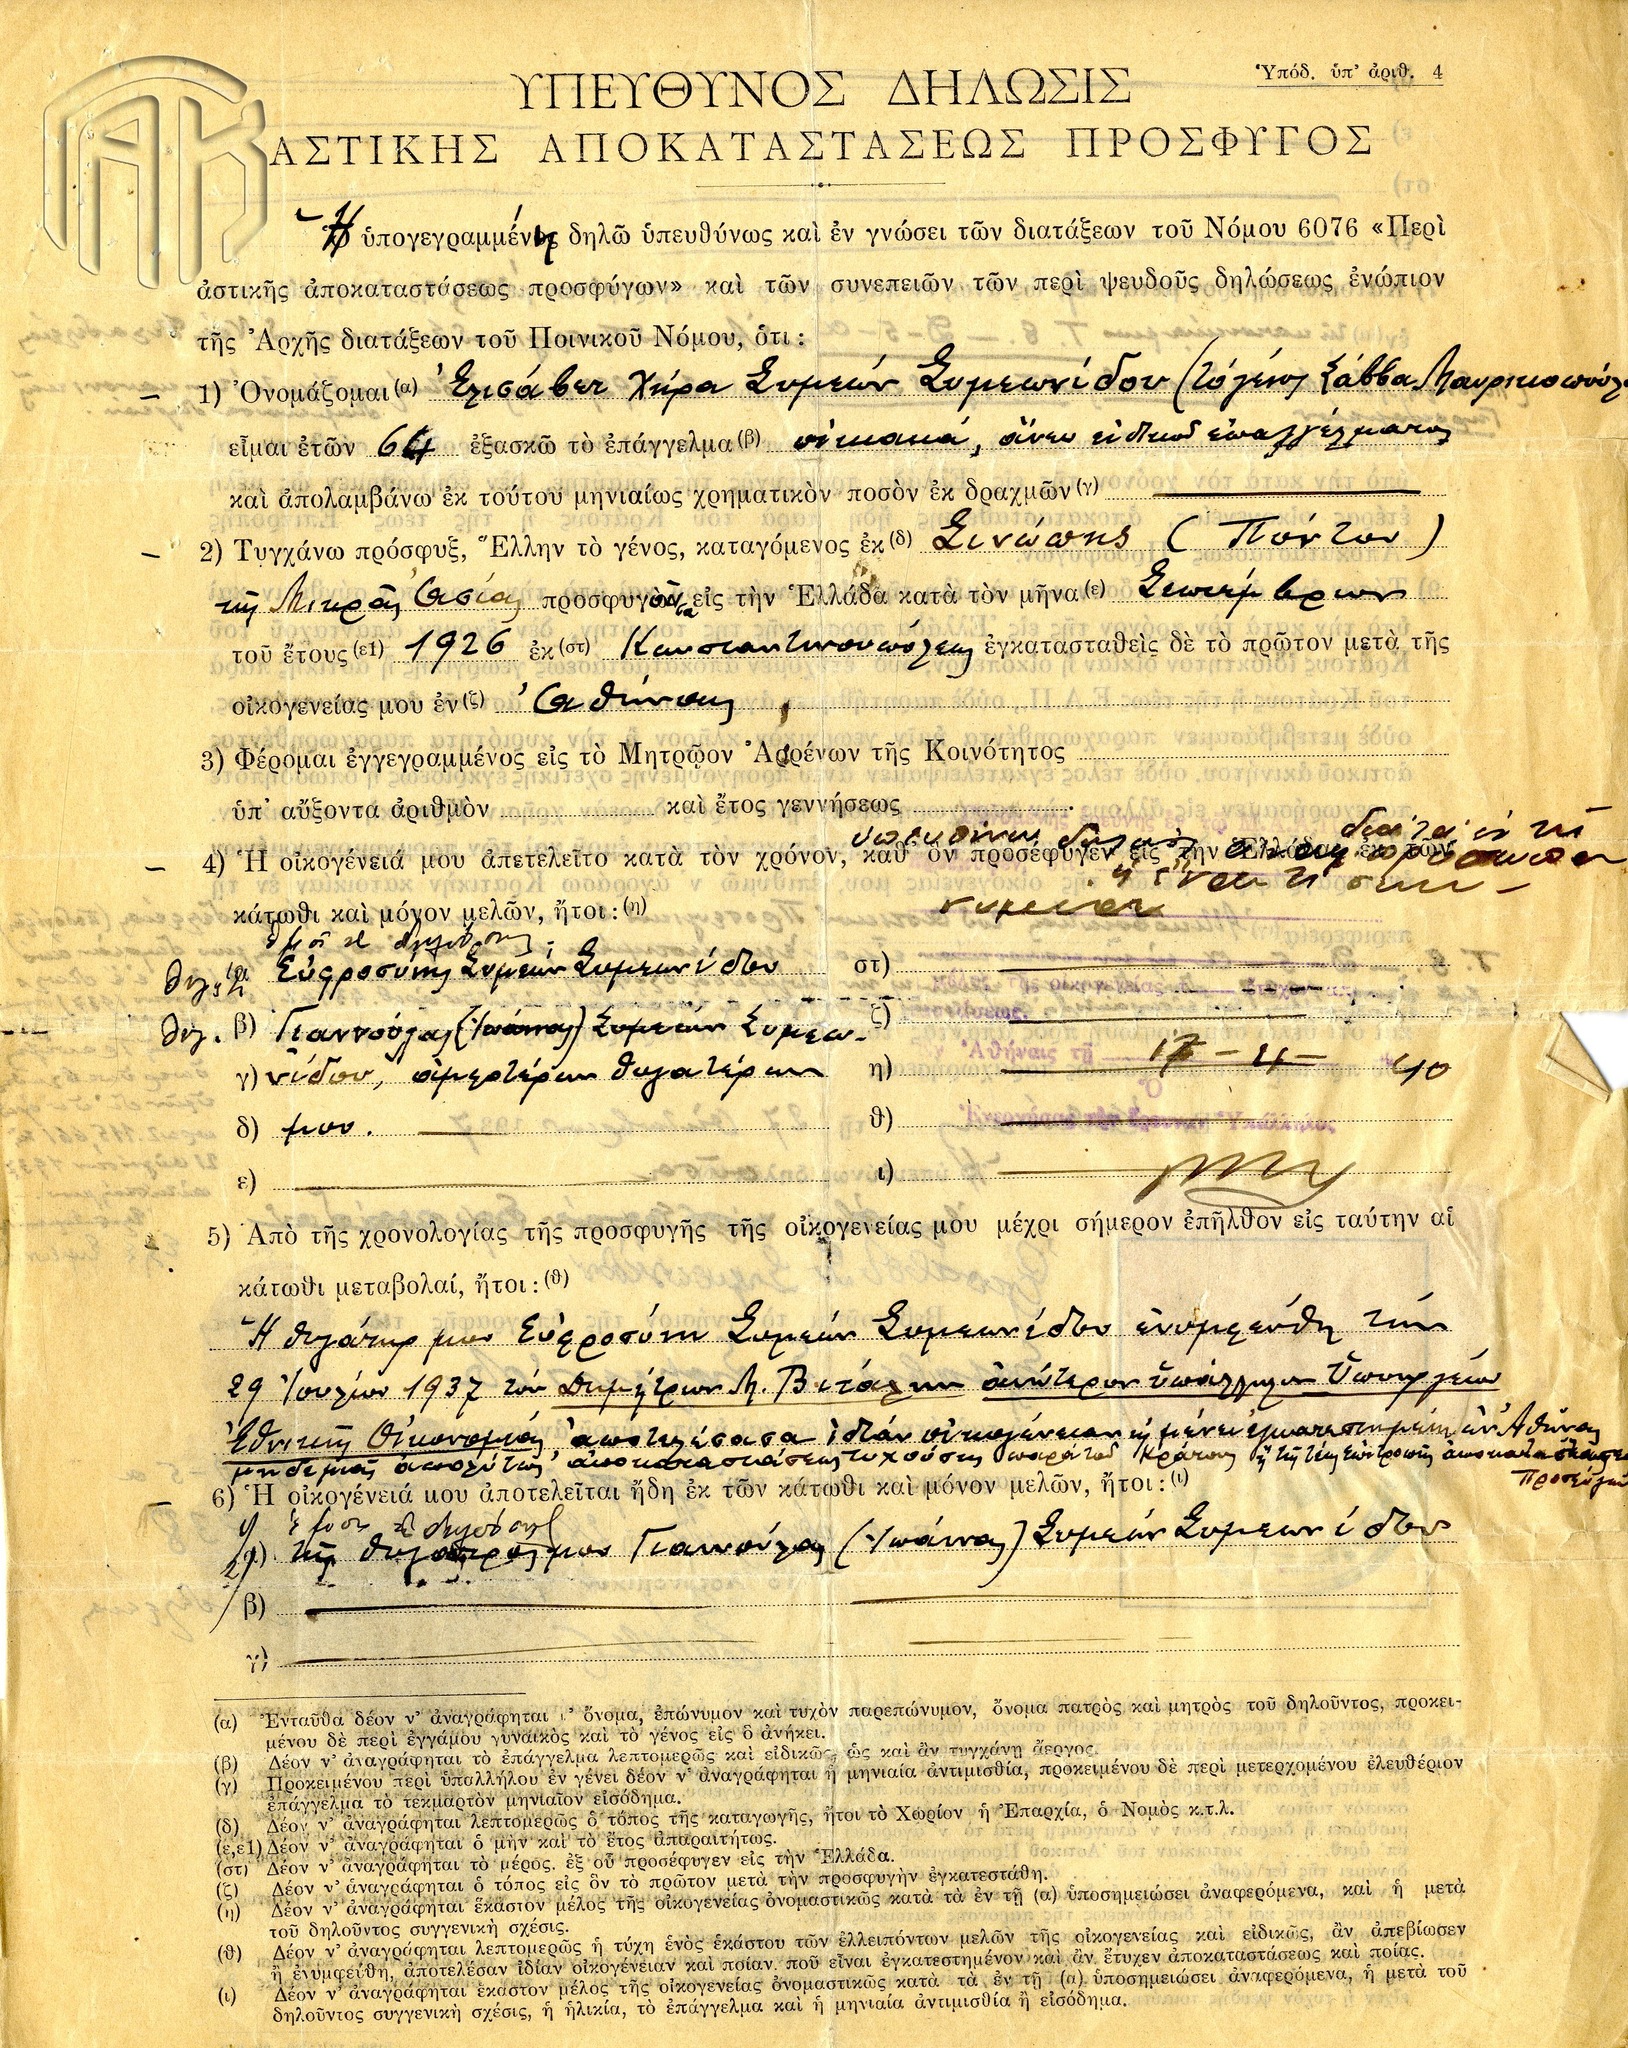 Ὑπόδ. ὑπ' ἀριθ. 4
ΥΠΕΥΘΥΝΟΣ ΔΗΛΩΣΙΣ
ΑΣΤΙΚΗΣ ΑΠΟΚΑΤΑΣΤΑΣΕΩΣ ΠΡΟΣΦΥΓΟΣ
Ἡ ὑπογεγραμμένη δηλῶ ὑπευθύνως καὶ ἐν γνώσει τῶν διατάξεων τοῦ Νόμου 6076 «Περὶ
ἀστικῆς ἀποκαταστάσεως προσφύγων» καὶ τῶν συνεπειῶν τῶν περὶ ψευδοῦς δηλώσεως ἐνώπιον
τῆς Ἀρχῆς διατάξεων τοῦ Ποινικοῦ Νόμου, ὅτι:
1) Ὀνομάζομαι (α) Ἐλισάβετ Χήρα Συμεών Συμεωνίδου (τὸ γένος Σάββα Μαυρικοπούλου
εἶμαι ἐτῶν 64 ἐξασκῶ τὸ ἐπάγγελμα (β) οἰκιακά, ἄνευ εἰδικοῦ ἐπαγγέλματος
καὶ ἀπολαμβάνω ἐκ τούτου μηνιαίως χρηματικὸν ποσὸν ἐκ δραχμῶν (γ)
2) Τυγχάνω πρόσφυξ, Ἕλλην τὸ γένος, καταγόμενος ἐκ (δ) Σινώπης (Πόντου)
τῆς Μικρᾶς Ἀσίας προσφυγοῦσα εἰς τὴν Ἑλλάδα κατὰ τὸν μῆνα (ε) Σεπτέμβριον
τοῦ ἔτους (ε1) 1926 ἐκ (στ) Κωνσταντινουπόλεως ἐγκατασταθεὶς δὲ τὸ πρῶτον μετὰ τῆς
οἰκογενείας μου ἐν (ζ) Ἀθήναις
3) Φέρομαι ἐγγεγραμμένος εἰς τὸ Μητρῷον Ἀρρένων τῆς Κοινότητος
ὑπ' αὔξοντα ἀριθμὸν καὶ ἔτος γεννήσεως
4) Ἡ οἰκογένειά μου ἀπετελεῖτο κατὰ τὸν χρόνον, καθ' ὃν προσέφυγεν εἰς τὴν Ἑλλάδα, ἐκ τῶν
κάτωθι καὶ μόνον μελῶν, ἤτοι: (η)
ἐμοῦ
Εὐφροσύνης Συμεών Συμεωνίδου στ)
θυγ. β) Γιαννούλας (Ἰωάννας) Συμεών Συμεω- ζ)
γ) νίδου, ἀμφοτέρων θυγατέρων η)
Ἀθήναις τῇ 17-11-40
δ) μου. θ)
ε) ι)
5) Ἀπὸ τῆς χρονολογίας τῆς προσφυγῆς τῆς οἰκογενείας μου μέχρι σήμερον ἐπῆλθον εἰς ταύτην αἱ
κάτωθι μεταβολαί, ἤτοι: (θ)
Ἡ θυγάτηρ μου Εὐφροσύνη Συμεών Συμεωνίδου ἐνυμφεύθη τὴν
29 Ἰουλίου 1937 τὸν Δημήτριον Μ. Βιτάλην ἀνώτερον ὑπάλληλον Ὑπουργείου
Ἐθνικῆς Οἰκονομίας, ἀποτελέσασα ἰδίαν οἰκογένειαν καὶ μένει ἐγκατεστημένη ἐν Ἀθήναις
μηδεμιᾶς ἀπολύτως ἀποκαταστάσεως τυχούσης παρὰ τοῦ Κράτους ἢ τῆς τέως Ἐπιτροπῆς Ἀποκαταστάσεως
Προσφύγων
6) Ἡ οἰκογένειά μου ἀποτελεῖται ἤδη ἐκ τῶν κάτωθι καὶ μόνον μελῶν, ἤτοι: (ι)
ἐμοῦ
2) τῆς θυγατρός μου Γιαννούλας (Ἰωάννας) Συμεών Συμεωνίδου
β)
γ)
(α) Ἐνταῦθα δέον ν' ἀναγράφηται τ' ὄνομα, ἐπώνυμον καὶ τυχὸν παρεπώνυμον, ὄνομα πατρὸς καὶ μητρὸς τοῦ δηλοῦντος, προκει-
μένου δὲ περὶ ἐγγάμου γυναικὸς καὶ τὸ γένος εἰς ὃ ἀνήκει.
(β) Δέον ν' ἀναγράφηται τὸ ἐπάγγελμα λεπτομερῶς καὶ εἰδικῶς, ὡς καὶ ἂν τυγχάνῃ ἄεργος.
(γ) Προκειμένου περὶ ὑπαλλήλου ἐν γένει δέον ν' ἀναγράφηται ἡ μηνιαία ἀντιμισθία, προκειμένου δὲ περὶ μετερχομένου ἐλευθέριον
ἐπάγγελμα τὸ τεκμαρτὸν μηνιαῖον εἰσόδημα.
(δ) Δέον ν' ἀναγράφηται λεπτομερῶς ὁ τόπος τῆς καταγωγῆς, ἤτοι τὸ Χωρίον ἡ Ἐπαρχία, ὁ Νομὸς κ.τ.λ.
(ε,ε1) Δέον ν' ἀναγράφηται ὁ μὴν καὶ τὸ ἔτος ἀπαραιτήτως.
(στ) Δέον ν' ἀναγράφηται τὸ μέρος, ἐξ οὗ προσέφυγεν εἰς τὴν Ἑλλάδα.
(ζ) Δέον ν' ἀναγράφηται ὁ τόπος εἰς ὃν τὸ πρῶτον μετὰ τὴν προσφυγὴν ἐγκατεστάθη.
(η) Δέον ν' ἀναγράφηται ἕκαστον μέλος τῆς οἰκογενείας ὀνομαστικῶς κατὰ τὰ ἐν τῇ (α) ὑποσημειώσει ἀναφερόμενα, καὶ ἡ μετὰ
τοῦ δηλοῦντος συγγενικὴ σχέσις.
(θ) Δέον ν' ἀναγράφηται λεπτομερῶς ἡ τύχη ἑνὸς ἑκάστου τῶν ἐλλειπόντων μελῶν τῆς οἰκογενείας καὶ εἰδικῶς, ἂν ἀπεβίωσεν
ἢ ἐνυμφεύθη, ἀποτελέσαν ἰδίαν οἰκογένειαν καὶ ποίαν, ποῦ εἶναι ἐγκατεστημένον καὶ ἂν ἔτυχεν ἀποκαταστάσεως καὶ ποίας.
(ι) Δέον ν' ἀναγράφηται ἕκαστον μέλος τῆς οἰκογενείας ὀνομαστικῶς κατὰ τὰ ἐν τῇ (α) ὑποσημειώσει ἀναφερόμενα, ἡ μετὰ τοῦ
δηλοῦντος συγγενικὴ σχέσις, ἡ ἡλικία, τὸ ἐπάγγελμα καὶ ἡ μηνιαία ἀντιμισθία ἢ εἰσόδημα.